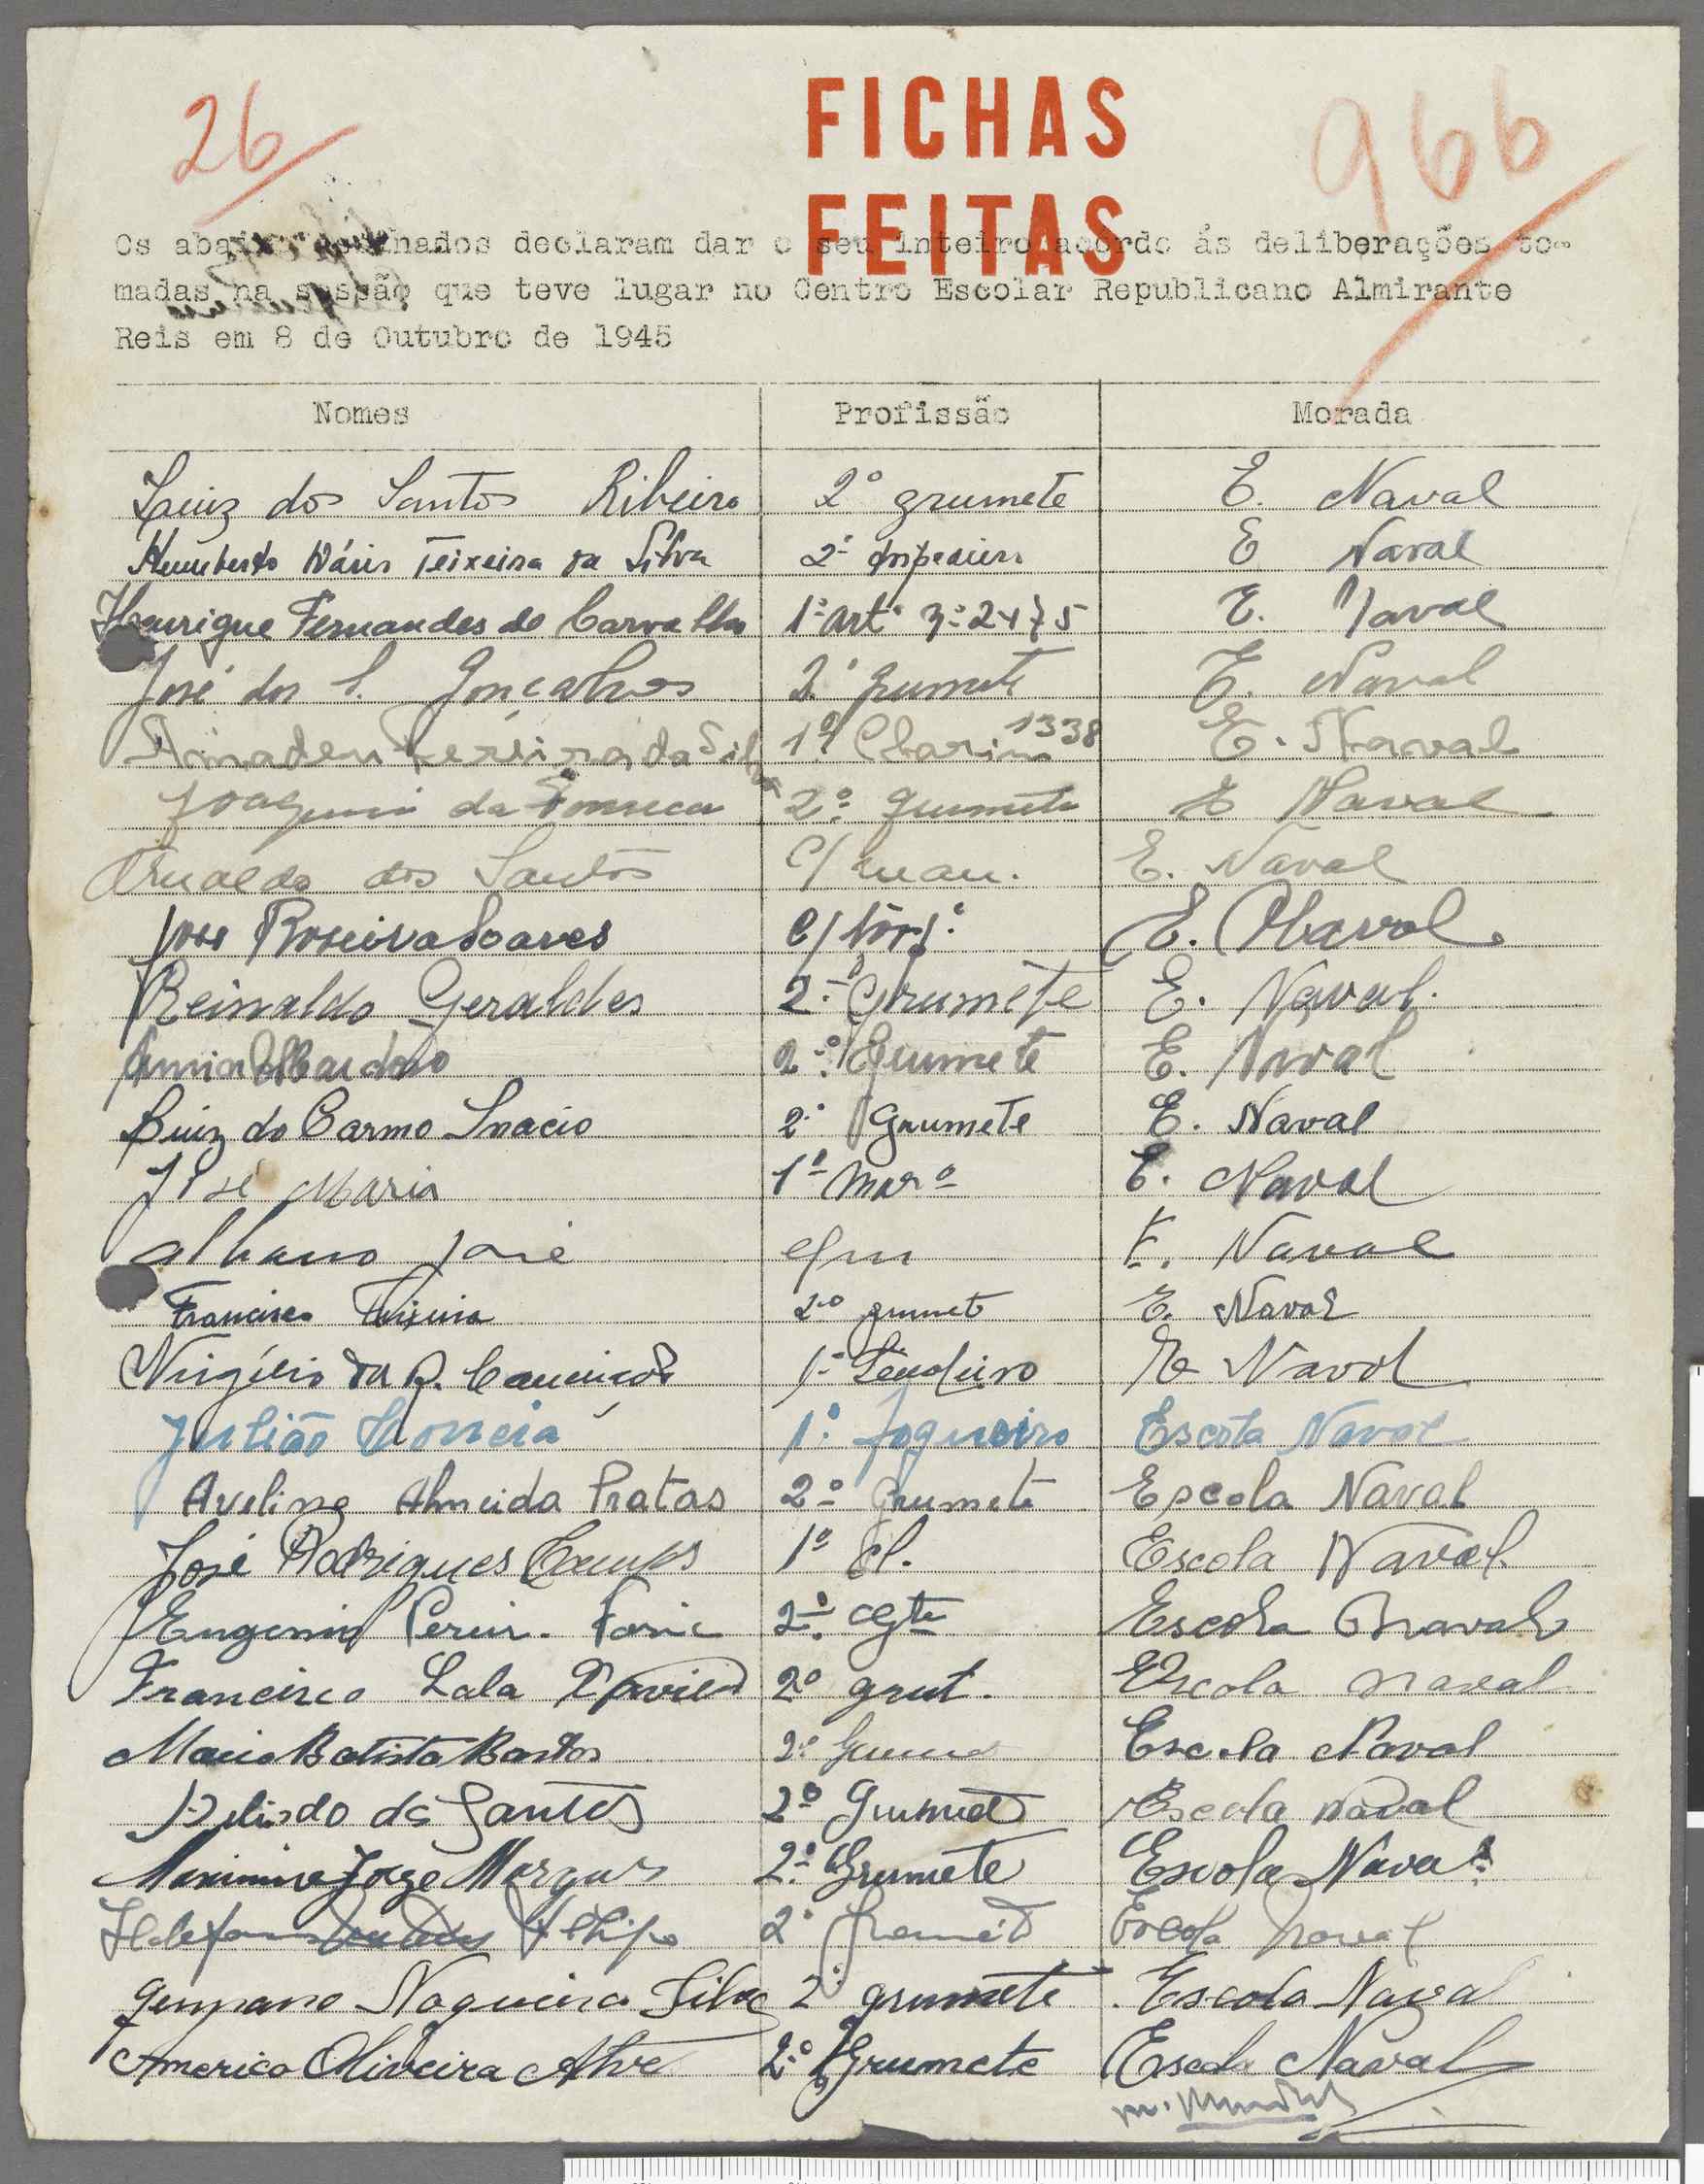 26
FICHAS
966
FEITAS
Os abaixo declaram dar o seu inteiro acordo ás deliberações to-
madas na sessão que teve lugar no Centro Escolar Republicano Almirante
Reis em 8 de Outubro de 1945
Nomes Profissão Morada
Luiz dos Santos Ribeiro 2º grumete E. Naval
Humberto Teixeira da Silva 2º E Naval
Henrique Fernandes de Carvalho 1º art. E. Naval
José dos S. Gonçalves 2º grumete E. Naval
Amadeu Pereira da Silva 1º 1338 E. Naval
Joaquim da Fonseca 2º grumete E Naval
Arnaldo dos Santos C/ E. Naval
José Soares C/ E. Naval
Reinaldo Geraldes 2º Grumete E. Naval.
2º Grumete E. Naval
Luiz do Carmo Inacio 2º Grumete E. Naval
José Maria 1º Marº E. Naval
Albano José E. Naval
Francisco Teixeira 2º grumete E. Naval
Virgílio da E Naval
Julião 1º fogueiro Escola Naval
Avelino Almeida Pratas 2º Grumete Escola Naval
José Rodrigues 1º El. Escola Naval
Eugenio 2º Escola Naval
Francisco Lala 2º grut. Escola Naval
Batista Bastos 2º Escola Naval
dos Santos 2º Grumete Escola Naval
Jorge 2º Grumete Escola Naval
Filipe 2º Escola Naval
Nogueira Silva 2º grumete Escola Naval
Americo Oliveira 2º Grumete Escola Naval